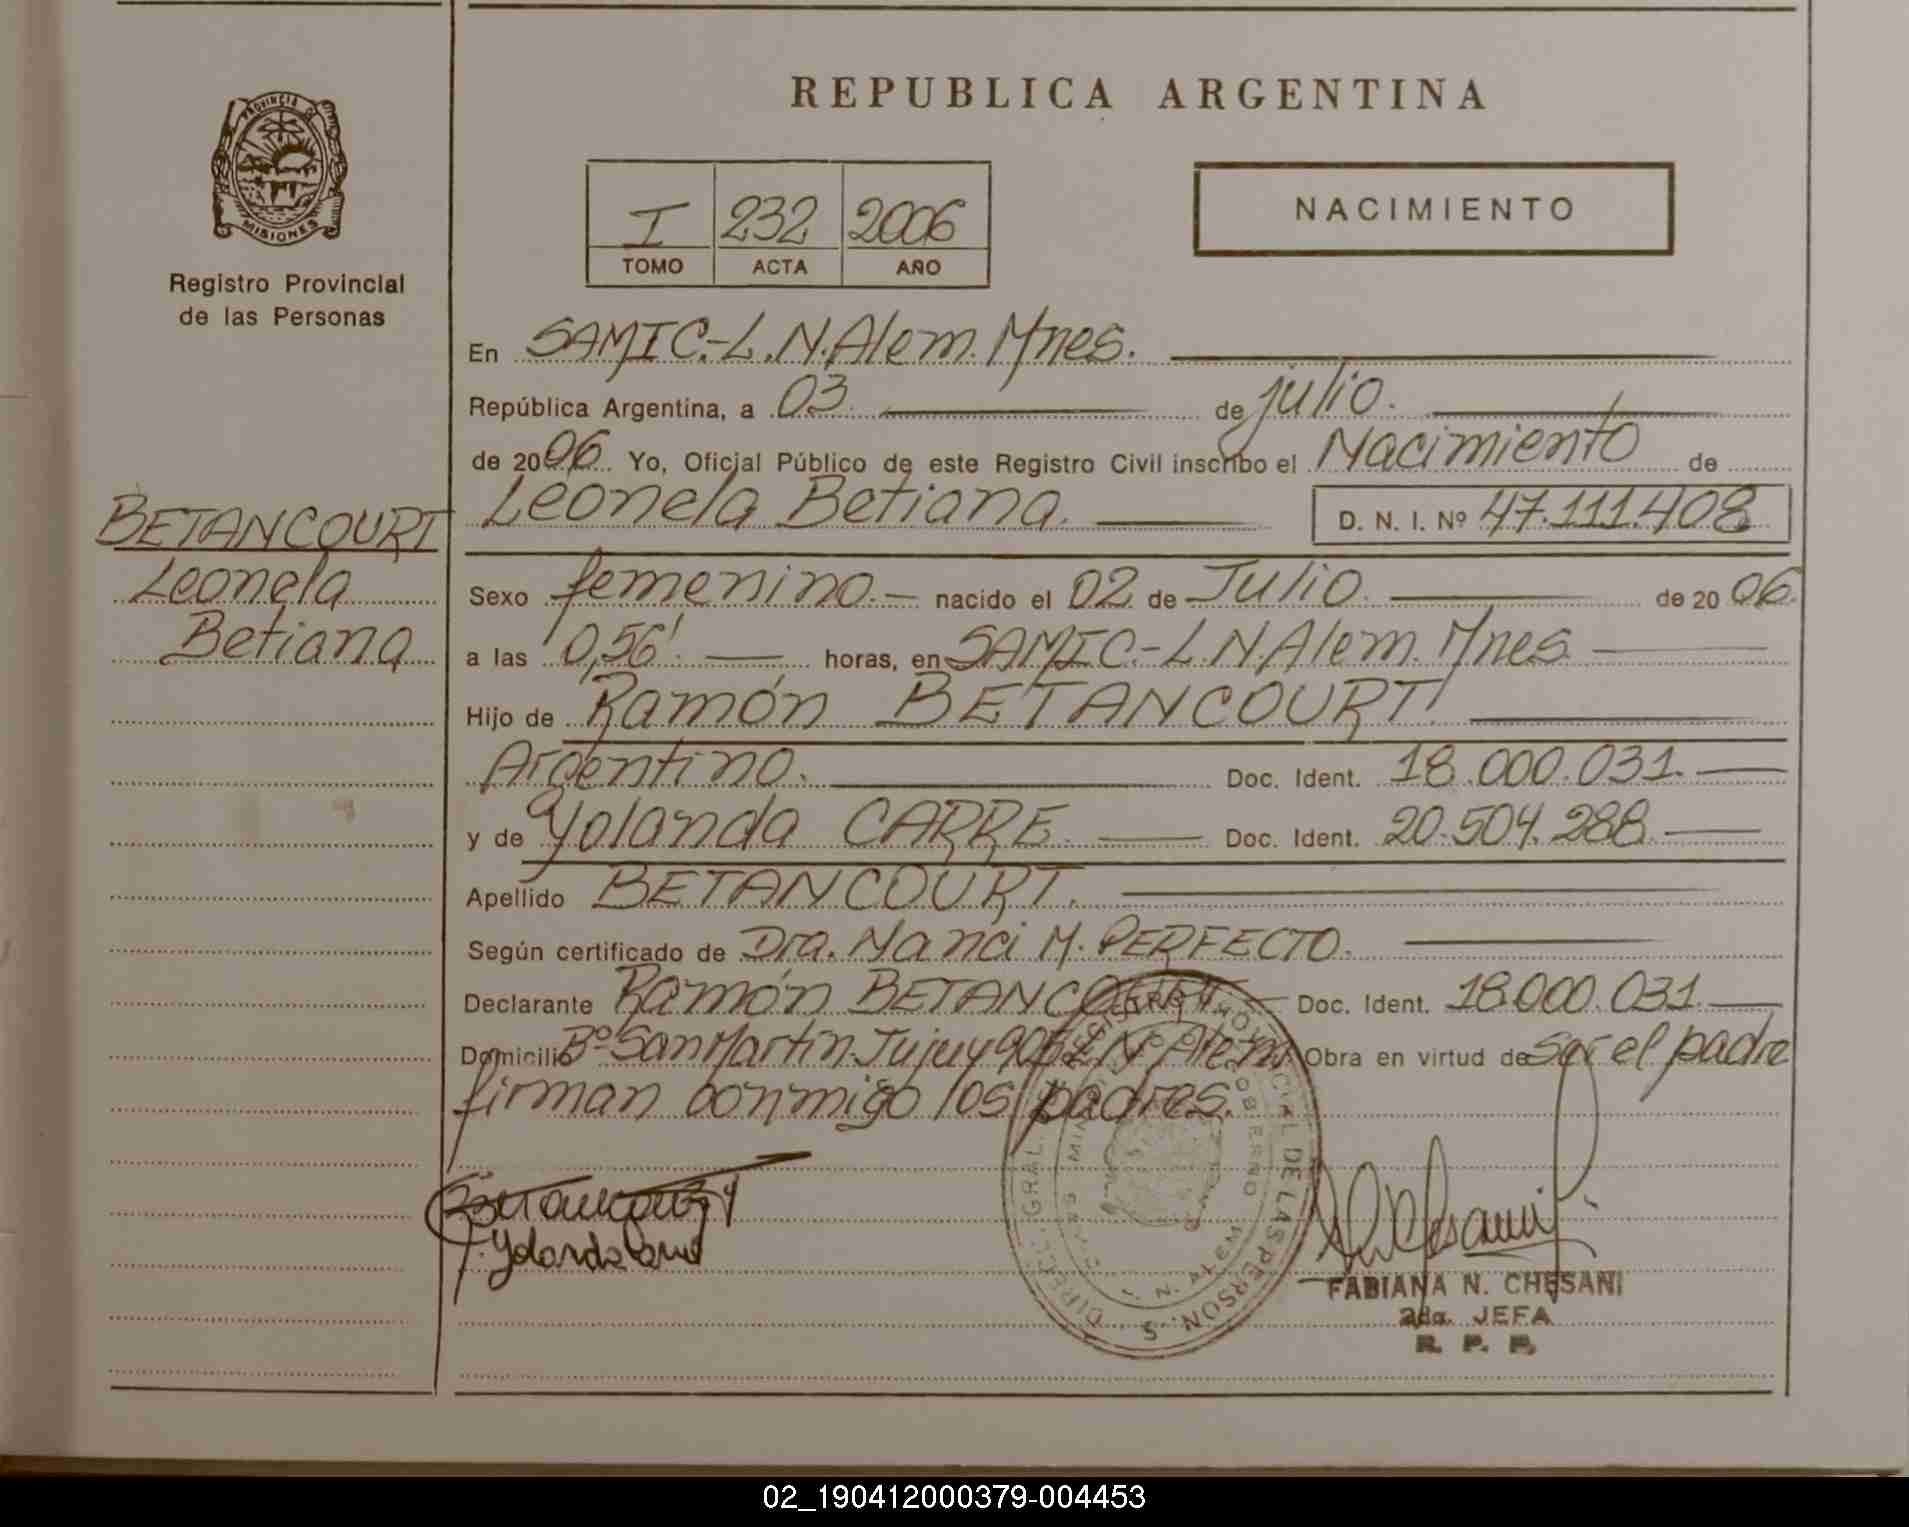 REPUBLICA ARGENTINA
PROVINCIA DE
MISIONES
Registro Provincial
de las Personas
I 232 2006
TOMO ACTA AÑO
NACIMIENTO
En SAMIC.-L.N.Alem. Mnes.
República Argentina, a 03. de julio.
de 2006 Yo, Oficial Público de este Registro Civil inscribo el Nacimiento de
Leonela Betiana. D. N. I. Nº 47.111.408
BETANCOURT
Leonela
Betiana
Sexo femenino.- nacido el 02 de Julio. de 2006.
a las 0,56'. horas, en SAMIC.-L.N.Alem. Mnes
Hijo de Ramón BETANCOURT.
Argentino. Doc. Ident. 18.000.031.
y de Yolanda CARRE. Doc. Ident. 20.504.288.
Apellido BETANCOURT.
Según certificado de Dra. Nanci M. PERFECTO.
Declarante Ramón BETANCOURT Doc. Ident. 18.000.031.
Domicilio Bº San Martin. Jujuy L.N. Alem. Obra en virtud de ser el padre
firman conmigo los padres.
Betancourt
Yolanda
DIREC. GRAL. REGISTRO PROVINCIAL DE LAS PERSON. S.
L. N. ALEM
FABIANA N. CHESANI
2da. JEFA
R. P. P.
02_190412000379-004453